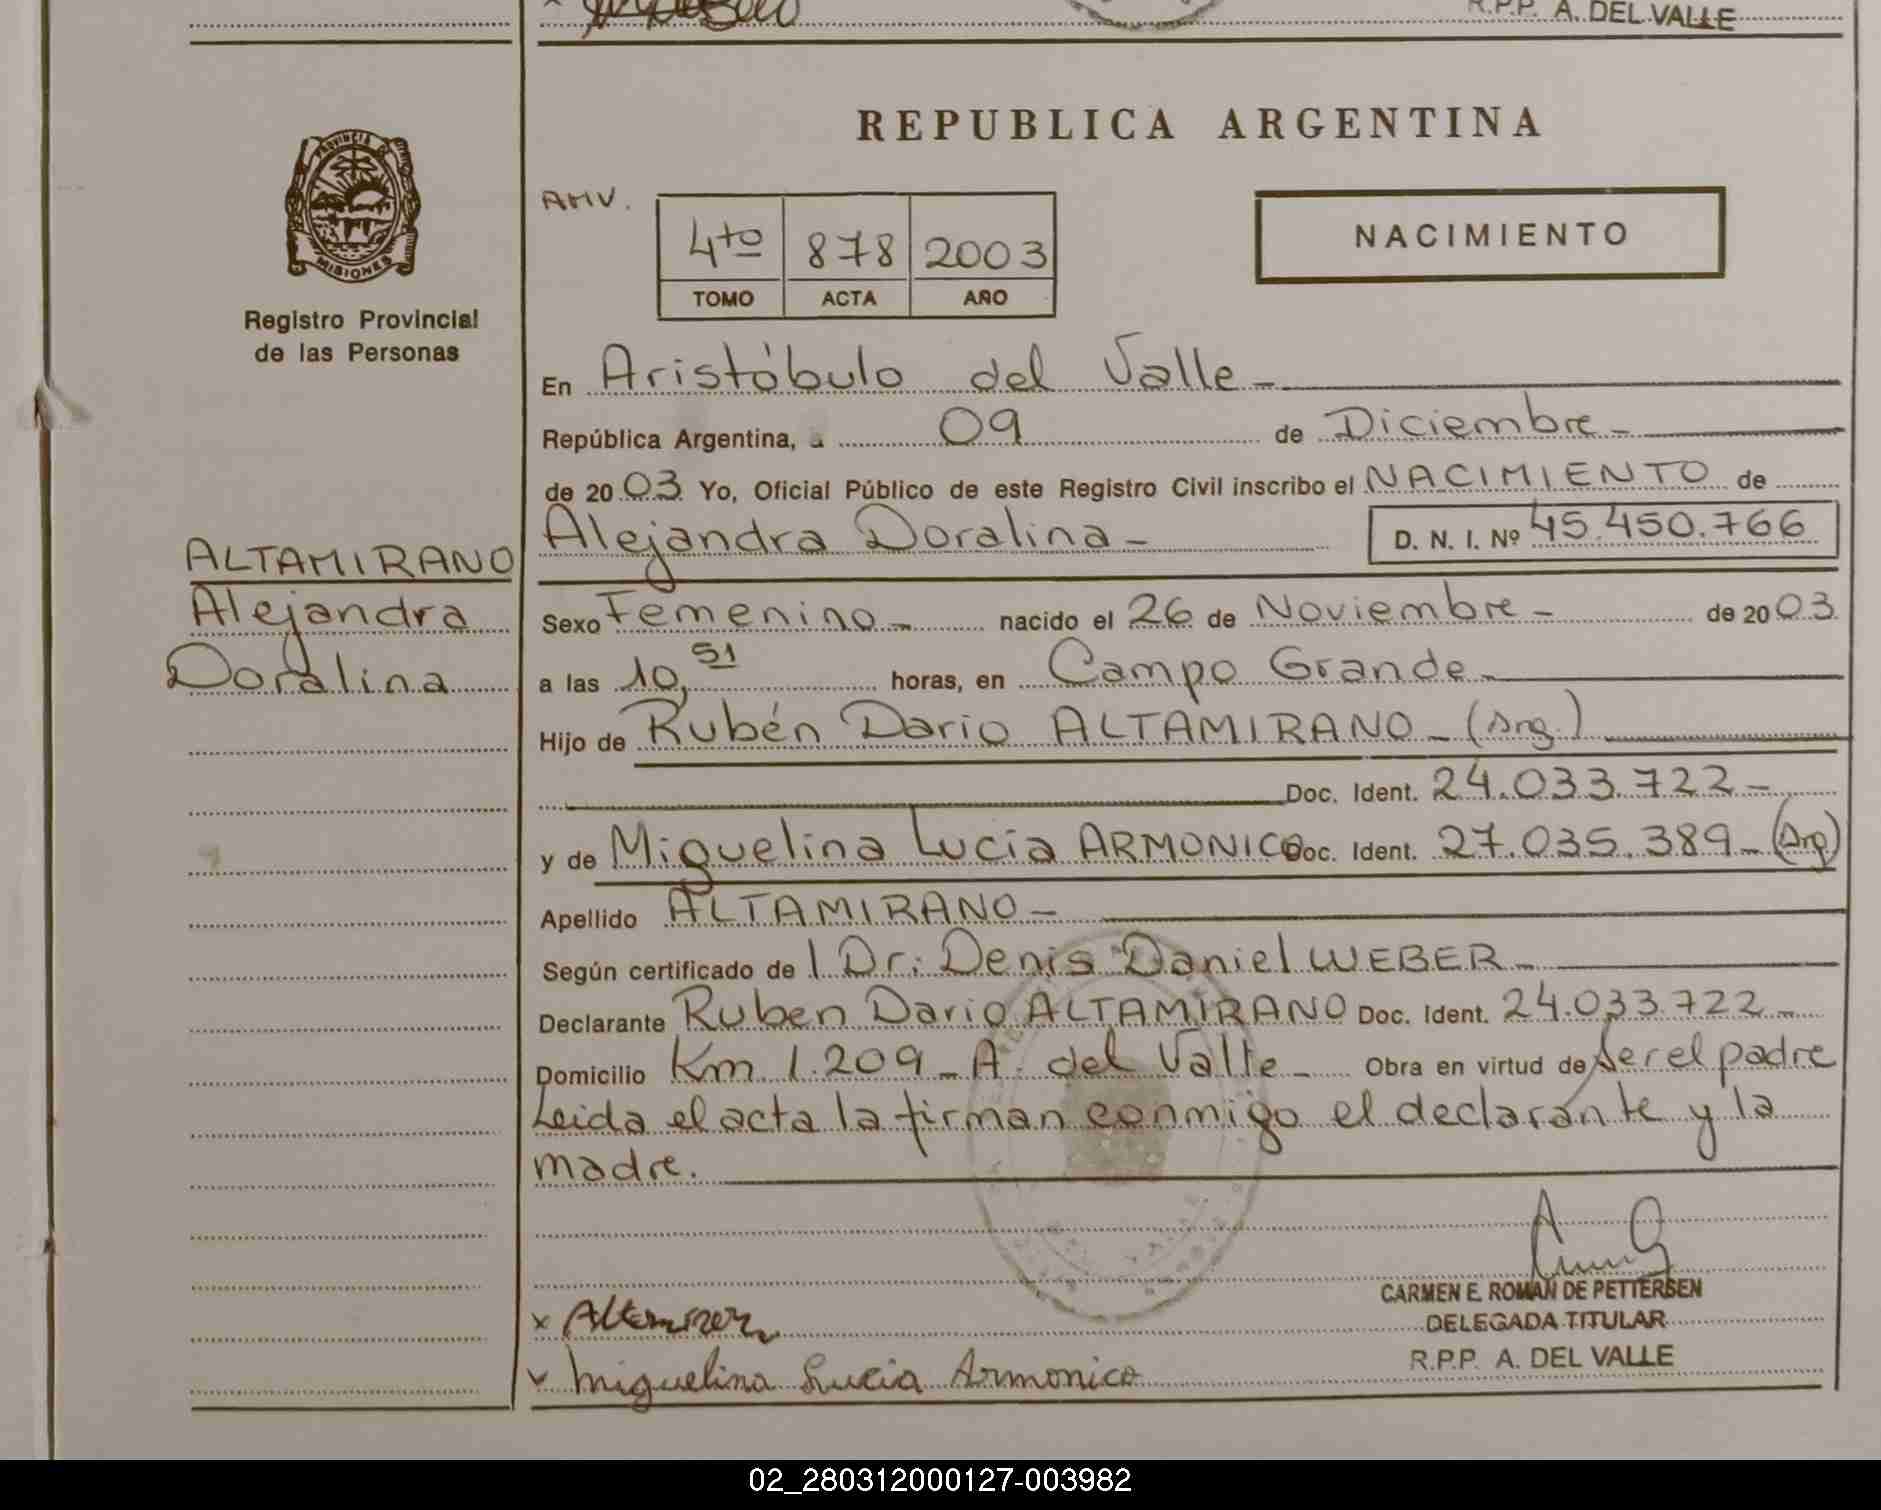 R.P.P. A. DEL VALLE
PROVINCIA DE
MISIONES
Registro Provincial
de las Personas
ALTAMIRANO
Alejandra
Doralina
REPUBLICA ARGENTINA
AMV.
4to 878 2003
TOMO ACTA AÑO
NACIMIENTO
En Aristóbulo del Valle -
República Argentina, a 09 de Diciembre -
de 20 03 Yo, Oficial Público de este Registro Civil inscribo el NACIMIENTO de
Alejandra Doralina - D. N. I. Nº 45.450.766
Sexo Femenino - nacido el 26 de Noviembre - de 20 03
a las 10,51 horas, en Campo Grande -
Hijo de Rubén Dario ALTAMIRANO - (Arg.)
Doc. Ident. 24.033.722 -
y de Miguelina Lucia ARMONICO Doc. Ident. 27.035.389 - (Arg)
Apellido ALTAMIRANO -
Según certificado de l Dr. Denis Daniel WEBER -
Declarante Ruben Dario ALTAMIRANO Doc. Ident. 24.033.722 -
Domicilio Km 1.209 - A. del Valle - Obra en virtud de Ser el padre
Leida el acta la firman conmigo el declarante y la
madre.
CARMEN E. ROMAN DE PETTERSEN
DELEGADA TITULAR
x
R.P.P. A. DEL VALLE
x Miguelina Lucia Armonico
02_280312000127-003982